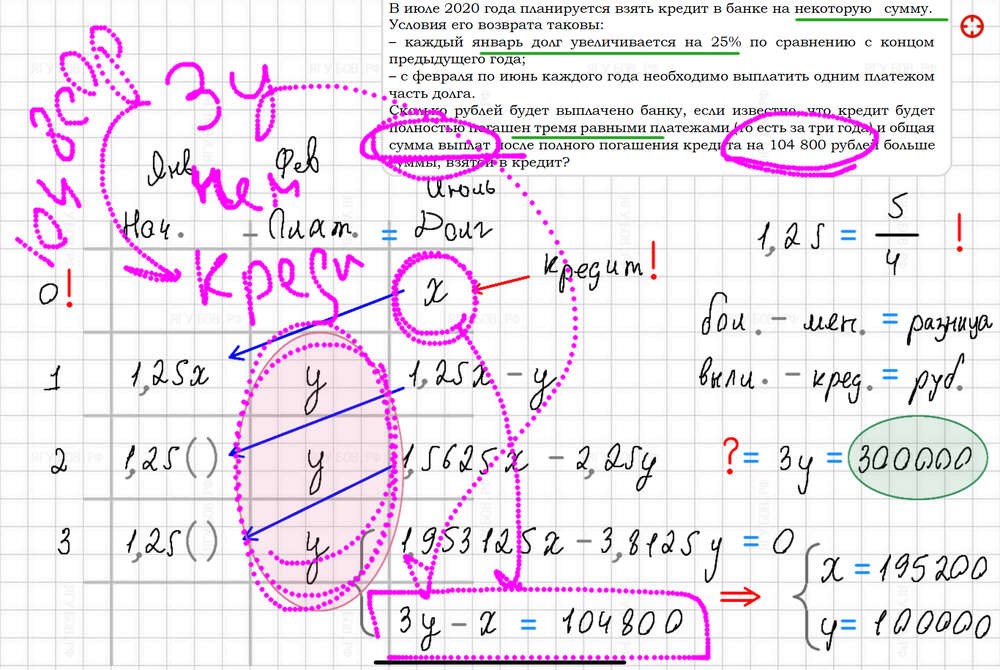 В июле 2020 года планируется взять кредит в банке на некоторую сумму.
Условия его возврата таковы:
– каждый январь долг увеличивается на 25% по сравнению с концом
предыдущего года;
– с февраля по июнь каждого года необходимо выплатить одним платежом
часть долга.
Сколько рублей будет выплачено банку, если известно, что кредит будет
полностью погашен тремя равными платежами (то есть за три года) и общая
сумма выплат после полного погашения кредита на 104 800 рублей больше
суммы, взятой в кредит?
3y
Янв Фев Июль
Нач. – Плат. = Долг
креди
0! x кредит!
1,25 = 5/4 !
бол. – мен. = разница
1 1,25x y 1,25x – y
выпл. – кред. = руб.
2 1,25( ) y 1,5625x – 2,25y
? = 3y = 300000
3 1,25( ) y 1,953125x – 3,8125y = 0
3y – x = 104800
⇒ x = 195200
y = 100000